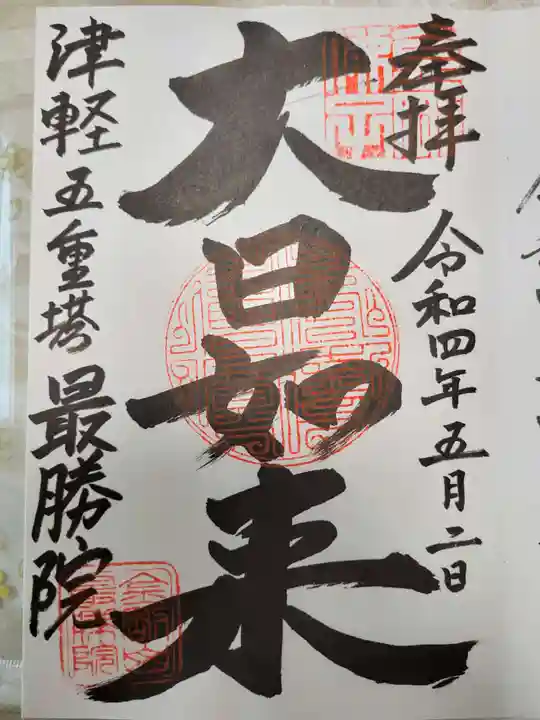 奉拝
令和四年五月二日
大日如来
津軽五重塔最勝院